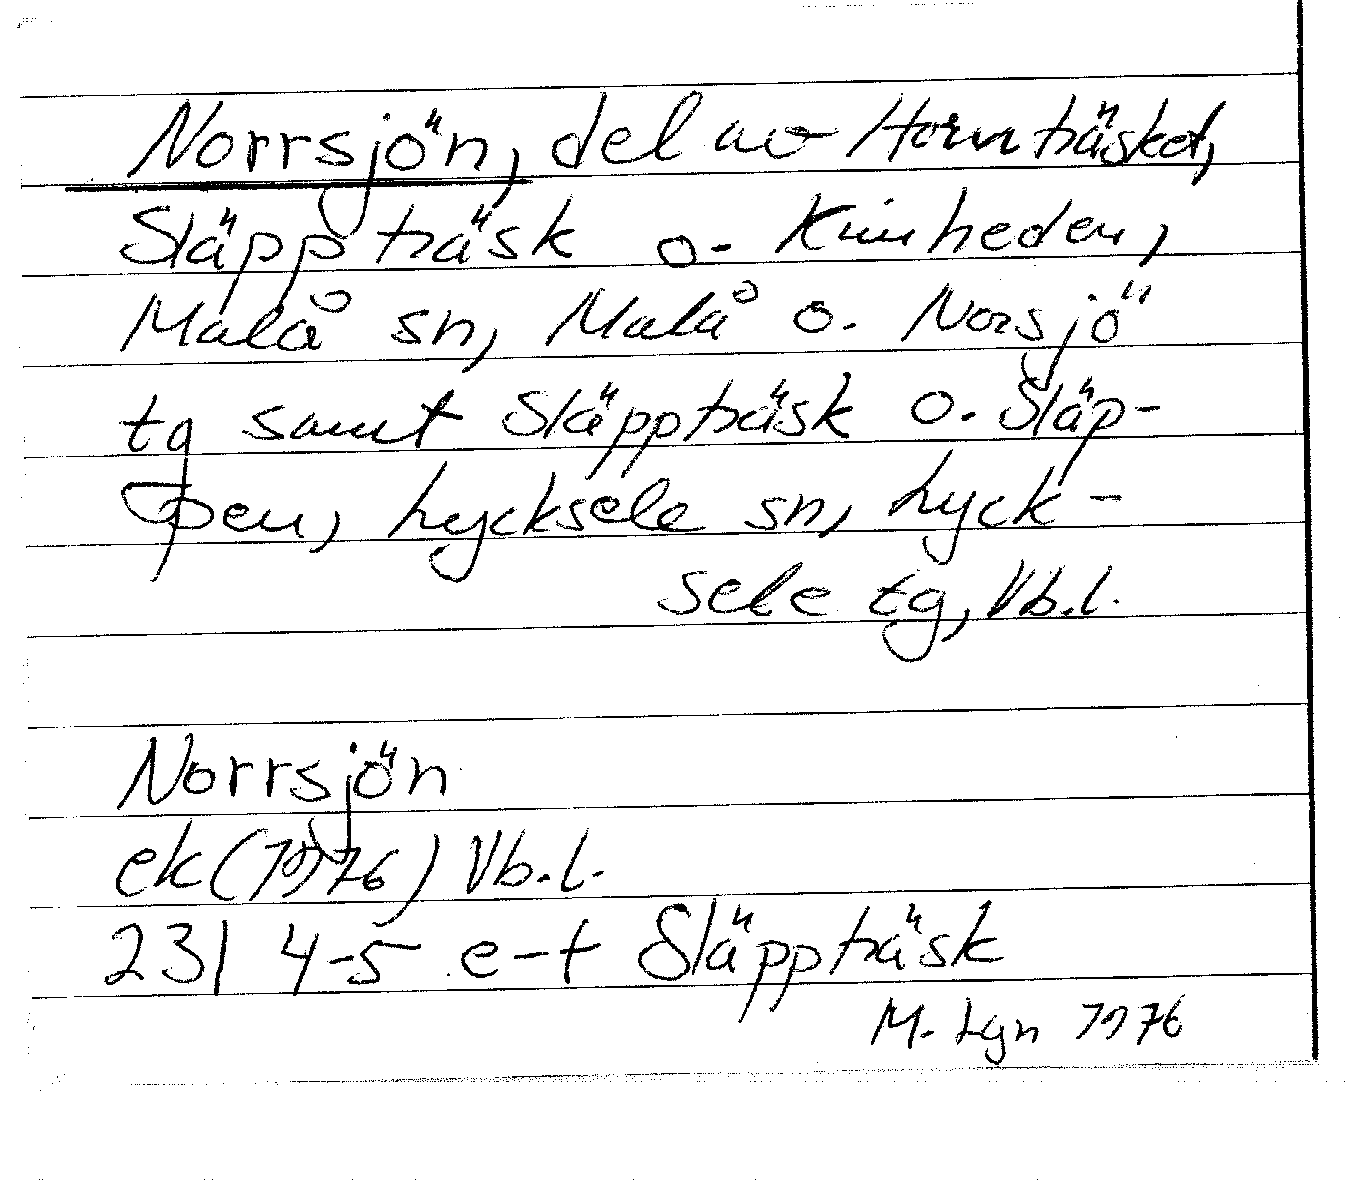 Norrsjön, del av Hornträsket,
Släppträsk o. Kniuheden,
Malå sn, Malå o. Norsjö
tg samt Släppträsk o. Släp-
pen, Lycksele sn, Lyck-
sele tg, Vb.l.
Norrsjön
ek (1976) Vb.l.
23I 4-5 e-f Släppträsk
M. Lgn 1976